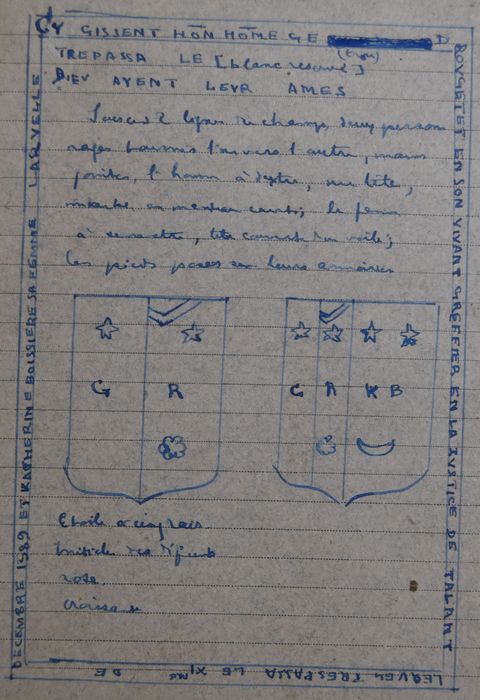 CY GISSENT HŌN HŌME GE D
ROVGETET EN SON VIVANT GREFFIER EN LA JVSTICE DE TALANT
LEQVEL TRESPASSA LE XIme DE
DECEMBRE 1589 ET KATHERINE BOISSIERE SA FEMME LAQVELLE
TREPASSA LE [blanc réservé]
DIEV AYENT LEVR AMES
2 lignes de champ, deux person
nages tournés l'un vers l'autre, mains
jointes, l'homme à dextre, nu tête,
manteau court; la femme
à senestre, tête couverte d'un voile;
les pieds posés sur leurs armoiries
G R
G R K B
Etoile à cinq rais
Initiale des défunts
rose
croissant